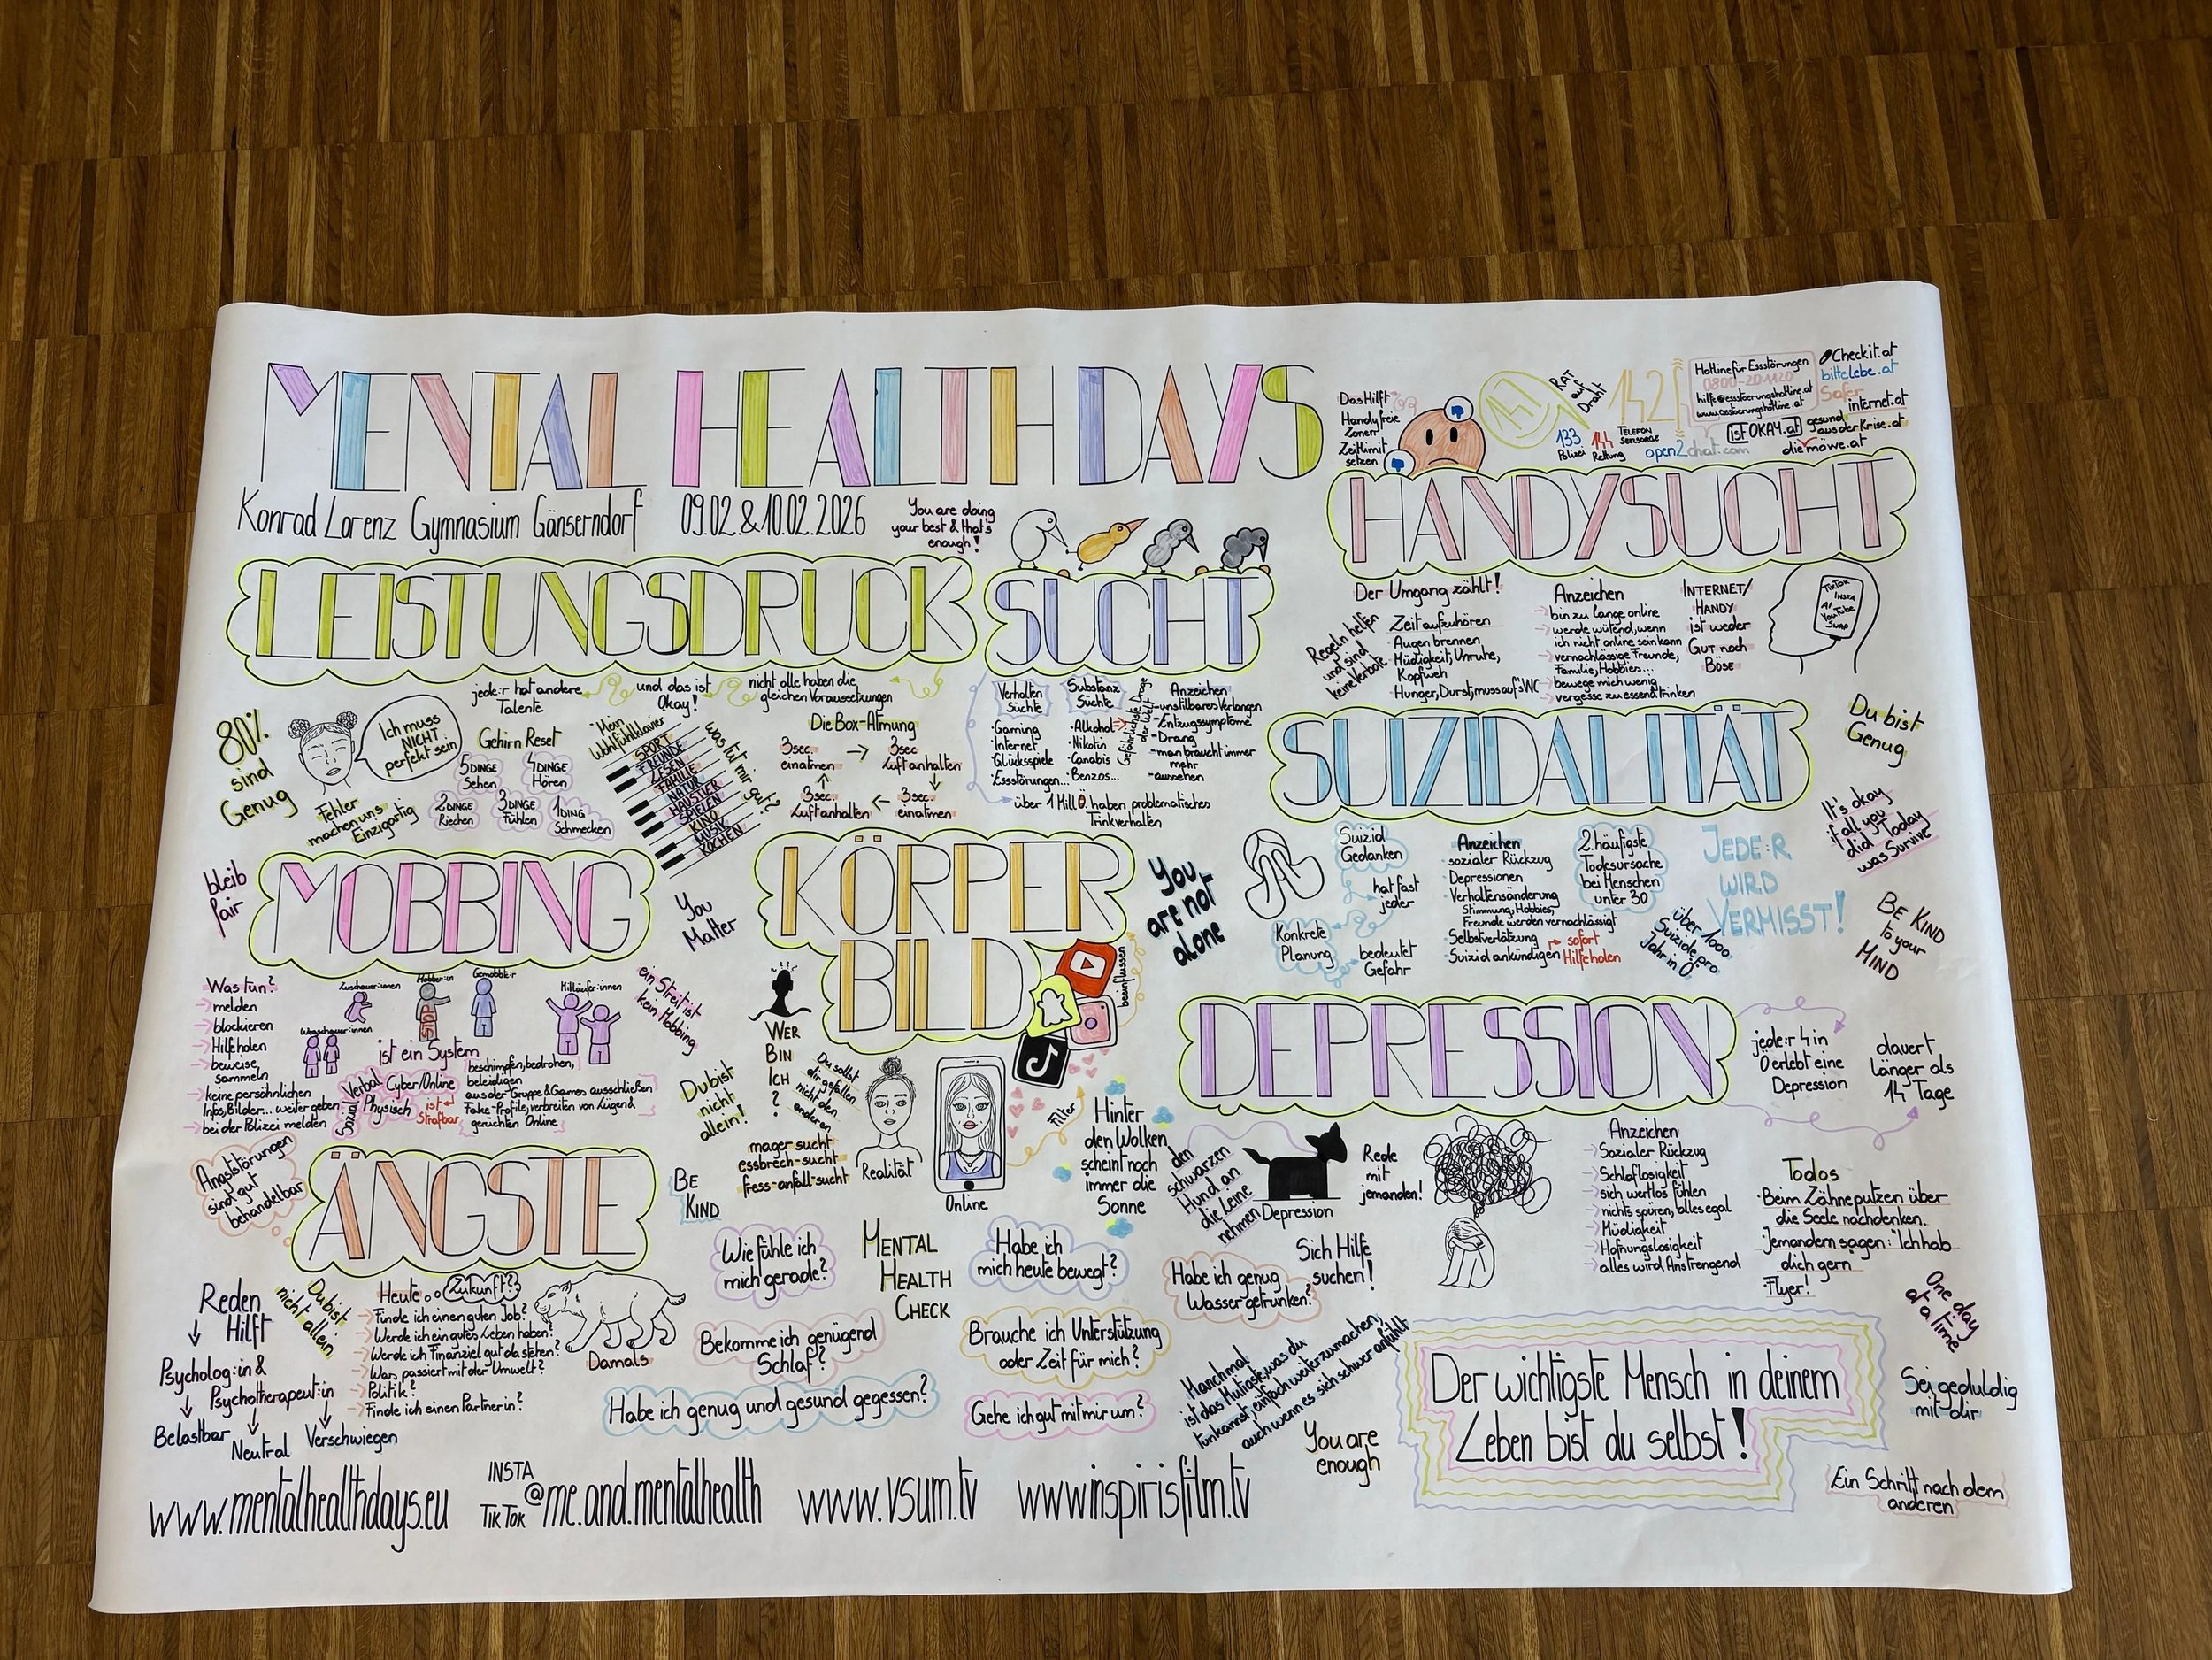 MENTAL HEALTH DAYS
Konrad Lorenz Gymnasium Gänserndorf 09.02.&10.02.2026
You are doing
your best & that's
enough!
Das Hilft
Handyfreie
Zonen
Zeitlimit
setzen
147
RAT
auf
Draht
133
Polizei
144
Rettung
142
TELEFON
SEELSORGE
Hotline für Essstörungen
0800-20 11 20
hilfe@essstoerungshotline.at
www.essstoerungshotline.at
Checkit.at
bittelebe.at
Safer
internet.at
istOKAY.at
gesund
ausderKrise.at
open2chat.com
diemöwe.at
LEISTUNGSDRUCK
jede:r hat andere
Talente
und das ist
Okay!
nicht alle haben die
gleichen Voraussetzungen
80%
sind
Genug
Ich muss
NICHT
perfekt sein
Fehler
machen uns
Einzigartig
Gehirn Reset
5 DINGE
Sehen
4 DINGE
Hören
2 DINGE
Riechen
3 DINGE
Fühlen
1 DING
Schmecken
Mein
Wohlfühlklavier
SPORT
FREUNDE
LESEN
FAMILIE
NATUR
HAUSTIER
SPIELEN
KINO
MUSIK
KOCHEN
was tut mir gut?
Die Box-Atmung
3sec.
einatmen
3sec
Luft anhalten
3sec.
Luft anhalten
3sec.
einatmen
SUCHT
Verhalten
Süchte
·Gaming
·Internet
·Glücksspiele
·Essstörungen...
Substanz
Süchte
·Alkohol
·Nikotin
·Canabis
·Benzos...
Gefährlichste Droge
der Welt
Anzeichen
-unstillbares Verlangen
-Entzugssymptome
-Drang
-man braucht immer
mehr
-aussehen
über 1 Mill Ö. haben problematisches
Trinkverhalten
HANDYSUCHT
Der Umgang zählt!
Regeln helfen
und sind
keine Verbote
Zeit aufzuhören
·Augen brennen,
·Müdigkeit, Unruhe,
Kopfweh
·Hunger, Durst, muss aufs WC
Anzeichen
bin zu lange online
werde wütend, wenn
ich nicht online sein kann
vernachlässige Freunde,
Familie, Hobbies...
bewege mich wenig
vergesse zu essen & trinken
INTERNET/
HANDY
ist weder
GUT noch
BÖSE
TIKTOK
INSTA
AI
YOUTUBE
SNAP
SUIZIDALITÄT
Du bist
Genug
Suizid
Gedanken
hat fast
jeder
Konkrete
Planung
bedeutet
Gefahr
Anzeichen
·sozialer Rückzug
·Depressionen
·Verhaltensänderung
Stimmung, Hobbies,
Freunde werden vernachlässigt
·Selbstverletzung
·Suizid ankündigen
sofort
Hilfe holen
2. häufigste
Todesursache
bei Menschen
unter 30
über 1000
Suizide pro
Jahr in Ö.
JEDE:R
WIRD
VERMISST!
It's okay
if all you
did Today
was Survive
BE KIND
to your
MIND
MOBBING
bleib
fair
You
Matter
Was tun?
melden
blockieren
Hilfe holen
beweise
sammeln
keine persönlichen
Infos, Bilder... weiter geben
bei der Polizei melden
Zuschauer:innen
Mobber:in
STOP
Gemobbte:r
Mitläufer:innen
Wegschauer:innen
ist ein System
ein Streit ist
kein Mobbing
Sozial
Verbal
Cyber/Online
Physisch
ist
Strafbar
beschimpfen, bedrohen,
beleidigen
aus der Gruppe & Games ausschließen
Fake-Profile, verbreiten von Lügen &
gerüchten Online
KÖRPER
BILD
beeinflussen
You
are not
alone
WER
BIN
ICH
?
Du sollst
dir gefallen
nicht den
anderen
Du bist
nicht
allein!
mager sucht
essbrech-sucht
fress-anfall-sucht
Realität
Online
Filter
DEPRESSION
jede:r 4 in
Ö erlebt eine
Depression
dauert
länger als
14 Tage
Hinter
den Wolken
scheint noch
immer die
Sonne
den
schwarzen
Hund an
die Leine
nehmen
Depression
Rede
mit
jemanden!
Sich Hilfe
suchen!
Anzeichen
Sozialer Rückzug
Schlaflosigkeit
sich wertlos fühlen
nichts spüren, alles egal
Müdigkeit
Hofnungslosigkeit
alles wird Anstrengend
Todos
·Beim Zähneputzen über
die Seele nachdenken.
·Jemandem sagen: "Ich hab
dich gern"
Flyer!
ÄNGSTE
Angststörungen
sind gut
behandelbar
BE
KIND
Reden
Hilft
Psycholog:in &
Psychotherapeut:in
Belastbar
Neutral
Verschwiegen
Du bist
nicht allein
Heute
Zukunft?
Finde ich einen guten Job?
Werde ich ein gutes Leben haben?
Werde ich Finanziel gut da stehen?
Was passiert mit der Umwelt?
Politik?
Finde ich einen Partner:in?
Damals
MENTAL
HEALTH
CHECK
Wie fühle ich
mich gerade?
Habe ich
mich heute bewegt?
Habe ich genug
Wasser getrunken?
Bekomme ich genügend
Schlaf?
Brauche ich Unterstützung
oder Zeit für mich?
Habe ich genug und gesund gegessen?
Gehe ich gut mit mir um?
Manchmal
ist das Mutigste, was du
tun kannst, einfach weiterzumachen,
auch wenn es sich schwer anfühlt
You are
enough
Der wichtigste Mensch in deinem
Leben bist du selbst!
One day
at a time
Sei geduldig
mit dir
Ein Schritt nach dem
anderen
www.mentalhealthdays.eu
INSTA
TIKTOK
@me.and.mentalhealth
www.vsum.tv
www.inspirisfilm.tv